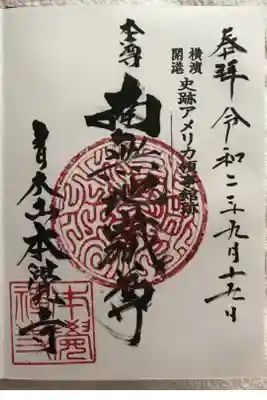 奉拝 令和二年九月十七日
横濱
開港
史跡アメリカ領事館跡
本尊
南無地蔵尊
青木山本覺寺